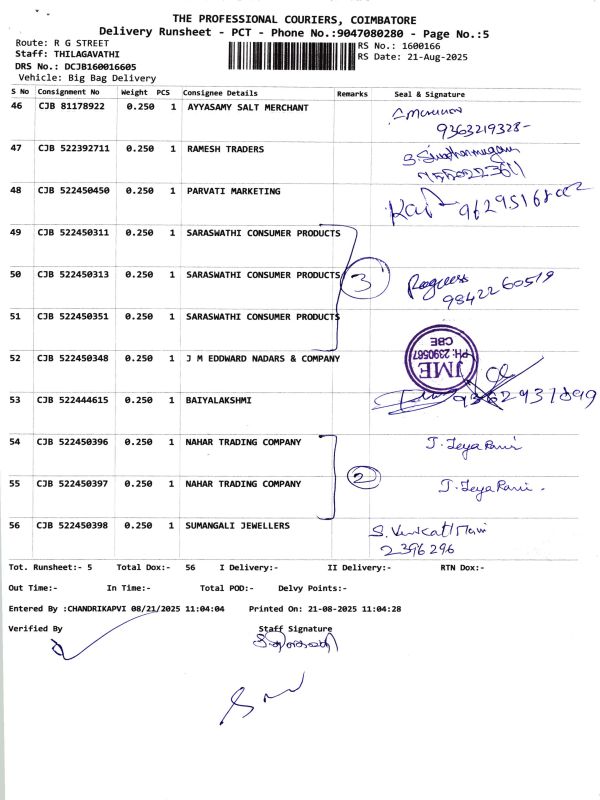 THE PROFESSIONAL COURIERS, COIMBATORE
Delivery Runsheet - PCT - Phone No.:9047080280 - Page No.:5
Route: R G STREET
Staff: THILAGAVATHI
RS No.: 1600166
DRS No.: DCJB160016605
RS Date: 21-Aug-2025
Vehicle: Big Bag Delivery
S No Consignment No Weight PCS Consignee Details Remarks Seal & Signature
46 CJB 81178922 0.250 1 AYYASAMY SALT MERCHANT
9363219328-
47 CJB 522392711 0.250 1 RAMESH TRADERS
48 CJB 522450450 0.250 1 PARVATI MARKETING
49 CJB 522450311 0.250 1 SARASWATHI CONSUMER PRODUCTS
50 CJB 522450313 0.250 1 SARASWATHI CONSUMER PRODUCTS 3
9842260519
51 CJB 522450351 0.250 1 SARASWATHI CONSUMER PRODUCTS
CBE
PH: 2390567
JME
52 CJB 522450348 0.250 1 J M EDDWARD NADARS & COMPANY
53 CJB 522444615 0.250 1 BAIYALAKSHMI
54 CJB 522450396 0.250 1 NAHAR TRADING COMPANY J. Jeya Rani
2
55 CJB 522450397 0.250 1 NAHAR TRADING COMPANY J. Jeya Rani.
56 CJB 522450398 0.250 1 SUMANGALI JEWELLERS
2396296
Tot. Runsheet:- 5 Total Dox:- 56 I Delivery:- II Delivery:- RTN Dox:-
Out Time:- In Time:- Total POD:- Delvy Points:-
Entered By :CHANDRIKAPVI 08/21/2025 11:04:04 Printed On: 21-08-2025 11:04:28
Verified By Staff Signature